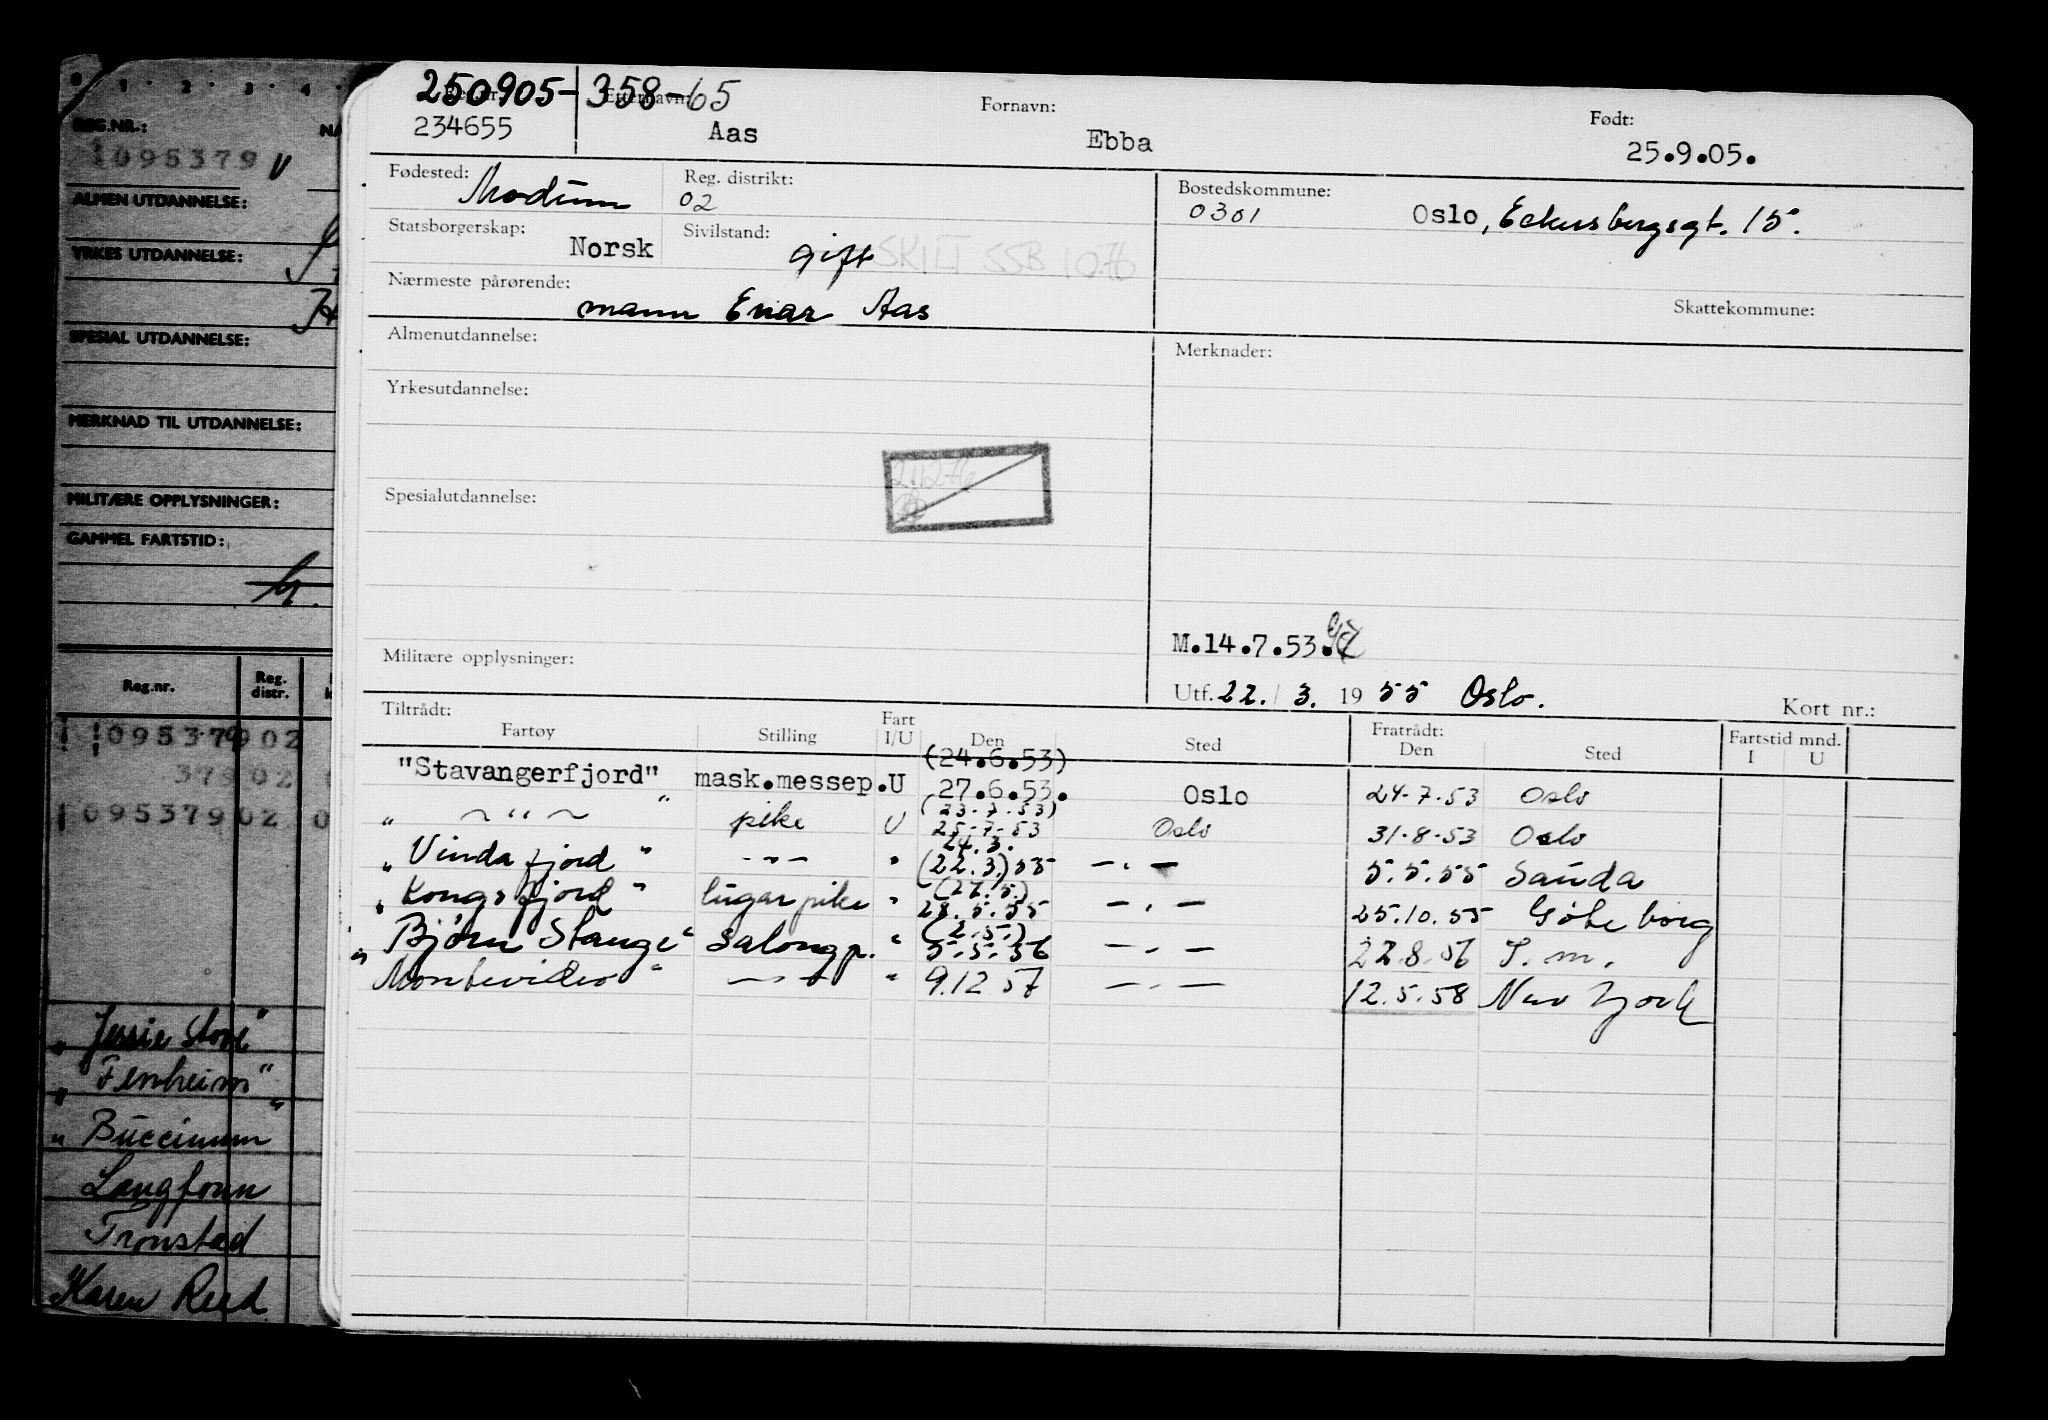 0 1 2 3 4
REG.NR.:
1095379 V
ALMEN UTDANNELSE:
YRKES UTDANNELSE:
SPESIAL UTDANNELSE:
MERKNAD TIL UTDANNELSE:
MILITÆRE OPPLYSNINGER:
GAMMEL FARTSTID:
Reg.nr. Reg. distr.
1095379 02
379 02
1095379 02 0
"Jessie Stove"
"Fenheim"
"Buccinum"
Langfonn
Tronstad
"Karen Reed
250905-358-65
Reg.nr. Etternavn: Fornavn: Født:
234655 Aas Ebba 25.9.05.
Fødested: Modum Reg. distrikt: 02 Bostedskommune: 0301 Oslo, Eckersbergsgt. 15.
Statsborgerskap: Norsk Sivilstand: gift SKILT SSB 10.76
Nærmeste pårørende: mann Enar Aas Skattekommune:
Almenutdannelse: Merknader:
Yrkesutdannelse:
Spesialutdannelse:
M.14.7.53.
Militære opplysninger:
Utf. 22./3. 1955 Oslo. Kort nr.:
Tiltrådt: Fratrådt: Fartstid mnd.
Fartøy Stilling Fart I/U Den Sted Den Sted I U
(24.6.53)
"Stavangerfjord" mask.messep. U 27.6.53. Oslo 24.7.53 Oslo
(23.7.53)
" — " — " pike U 25.7.53 Oslo 31.8.53 Oslo
24.3.
"Vindafjord" -"- " (22.3.) 55 — " — 5.5.55 Sauda
(27.5.)
"Kongsfjord" lugarpike " 28.5.55 — " — 25.10.55 Göteborg
(2.5.)
"Bjørn Stange" Salongp. " 5.5.56 — " — 22.8.56 T.m.
Montevideo" — " — " 9.12 57 — " — 12.5.58 New York